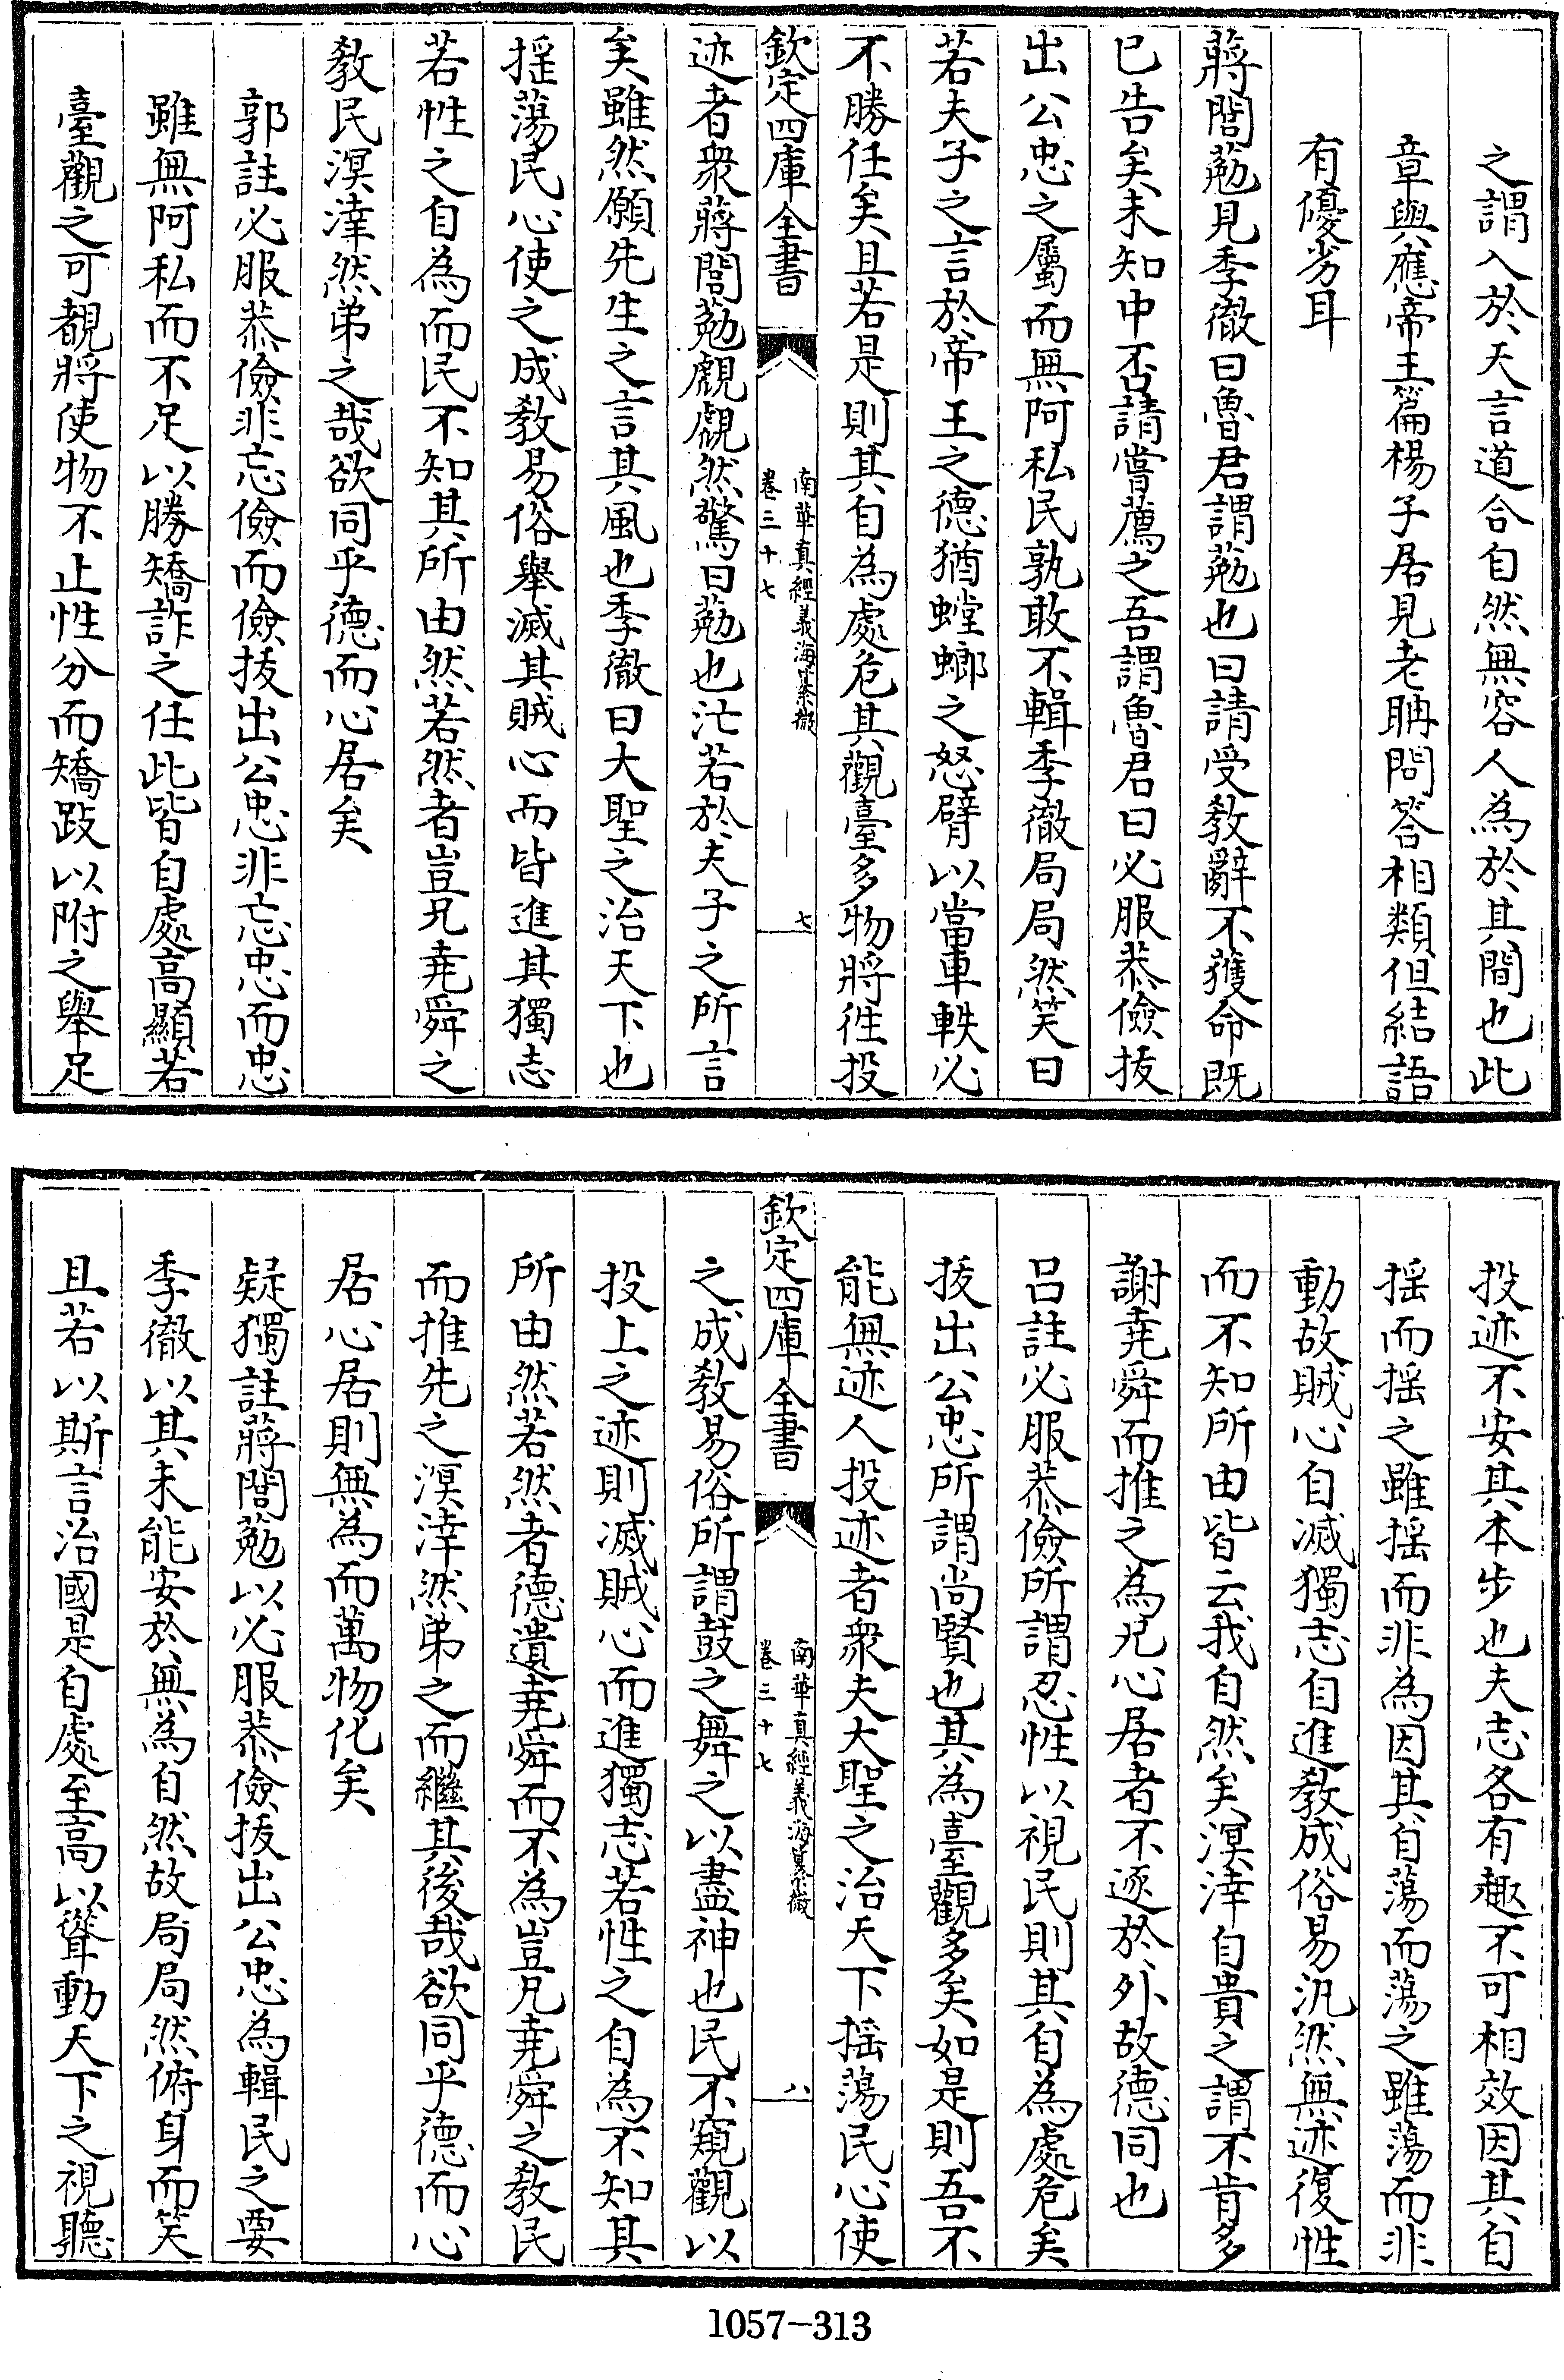 之謂入於天言道合自然無容人為於其間也此
章與應帝王篇楊子居見老聃問答相類但結語
有優劣耳
蔣閭葂見季徹曰魯君謂葂也曰請受敎辭不獲命既
已告矣未知中否請嘗薦之吾謂魯君曰必服恭儉拔
出公忠之屬而無阿私民孰敢不輯季徹局局然笑曰
若夫子之言於帝王之德猶螳螂之怒臂以當車軼必
不勝任矣且若是則其自為處危其觀臺多物將徃投
欽定四庫全書
南華真經義海纂微
卷三十七
七
迹者衆蔣閭葂覤覤然驚曰葂也汒若於夫子之所言
矣雖然願先生之言其風也季徹曰大聖之治天下也
揺蕩民心使之成敎易俗舉滅其賊心而皆進其獨志
若性之自為而民不知其所由然若然者豈兄堯舜之
敎民溟涬然弟之哉欲同乎德而心居矣
郭註必服恭儉非忘儉而儉拔出公忠非忘忠而忠
雖無阿私而不足以勝矯詐之任此皆自處高顯若
臺觀之可覩將使物不止性分而矯跂以附之舉足
投迹不安其本步也夫志各有趣不可相效因其自
揺而揺之雖揺而非為因其自蕩而蕩之雖蕩而非
動故賊心自滅獨志自進敎成俗易汎然無迹復性
而不知所由皆云我自然矣溟涬自貴之謂不肯多
謝堯舜而推之為兄心居者不逐於外故德同也
吕註必服恭儉所謂忍性以視民則其自為處危矣
拔出公忠所謂尚賢也其為臺觀多矣如是則吾不
能無迹人投迹者衆夫大聖之治天下揺蕩民心使
欽定四庫全書
南華真經義海纂微
卷三十七
八
之成敎易俗所謂鼓之舞之以盡神也民不窺觀以
投上之迹則滅賊心而進獨志若性之自為不知其
所由然若然者德遺堯舜而不為豈兄堯舜之敎民
而推先之溟涬然弟之而繼其後哉欲同乎德而心
居心居則無為而萬物化矣
疑獨註蔣閭葂以必服恭儉拔出公忠為輯民之要
季徹以其未能安於無為自然故局局然俯身而笑
且若以斯言治國是自處至高以聳動天下之視聽
1057-313